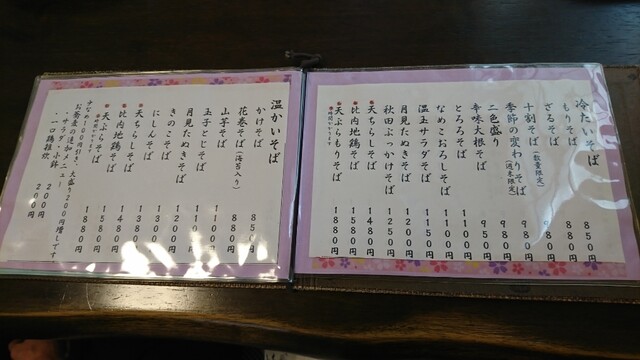 冷たいそば
もりそば 850円
ざるそば 880円
十割そば(数量限定) 980円
季節の変わりそば(週末限定) 980円
二色盛り 980円
辛味大根そば 950円
とろろそば 1100円
なめこおろしそば 1100円
温玉サラダそば 1150円
月見たぬきそば 1200円
秋田ぶっかけそば 1250円
天ちらしそば 1480円
比内地鶏そば 1580円
天ぷらもりそば 1880円
温かいそば
かけそば 850円
花巻そば(海苔入り) 880円
山芋そば 1100円
玉子とじそば 1100円
月見たぬきそば 1200円
きのこそば 1300円
にしんそば 1380円
天ちらしそば 1480円
比内地鶏そば 1580円
天ぷらそば 1880円
少なめ100円引き、大盛り200円増しです
お蕎麦の追加メニュー
・サラダ・小鉢 200円
・一口鶏雑炊 200円